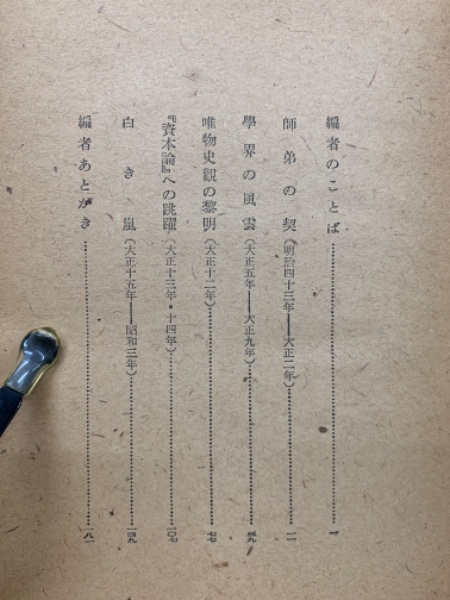 編者のことば……一
師弟の契(明治四十三年――大正二年)……一一
學界の風雲(大正五年――大正九年)……四九
唯物史觀の黎明(大正十二年)……七七
『資本論』への跳躍(大正十三年・十四年)……一〇七
白き嵐(大正十五年――昭和三年)……一四九
編者あとがき……一八一